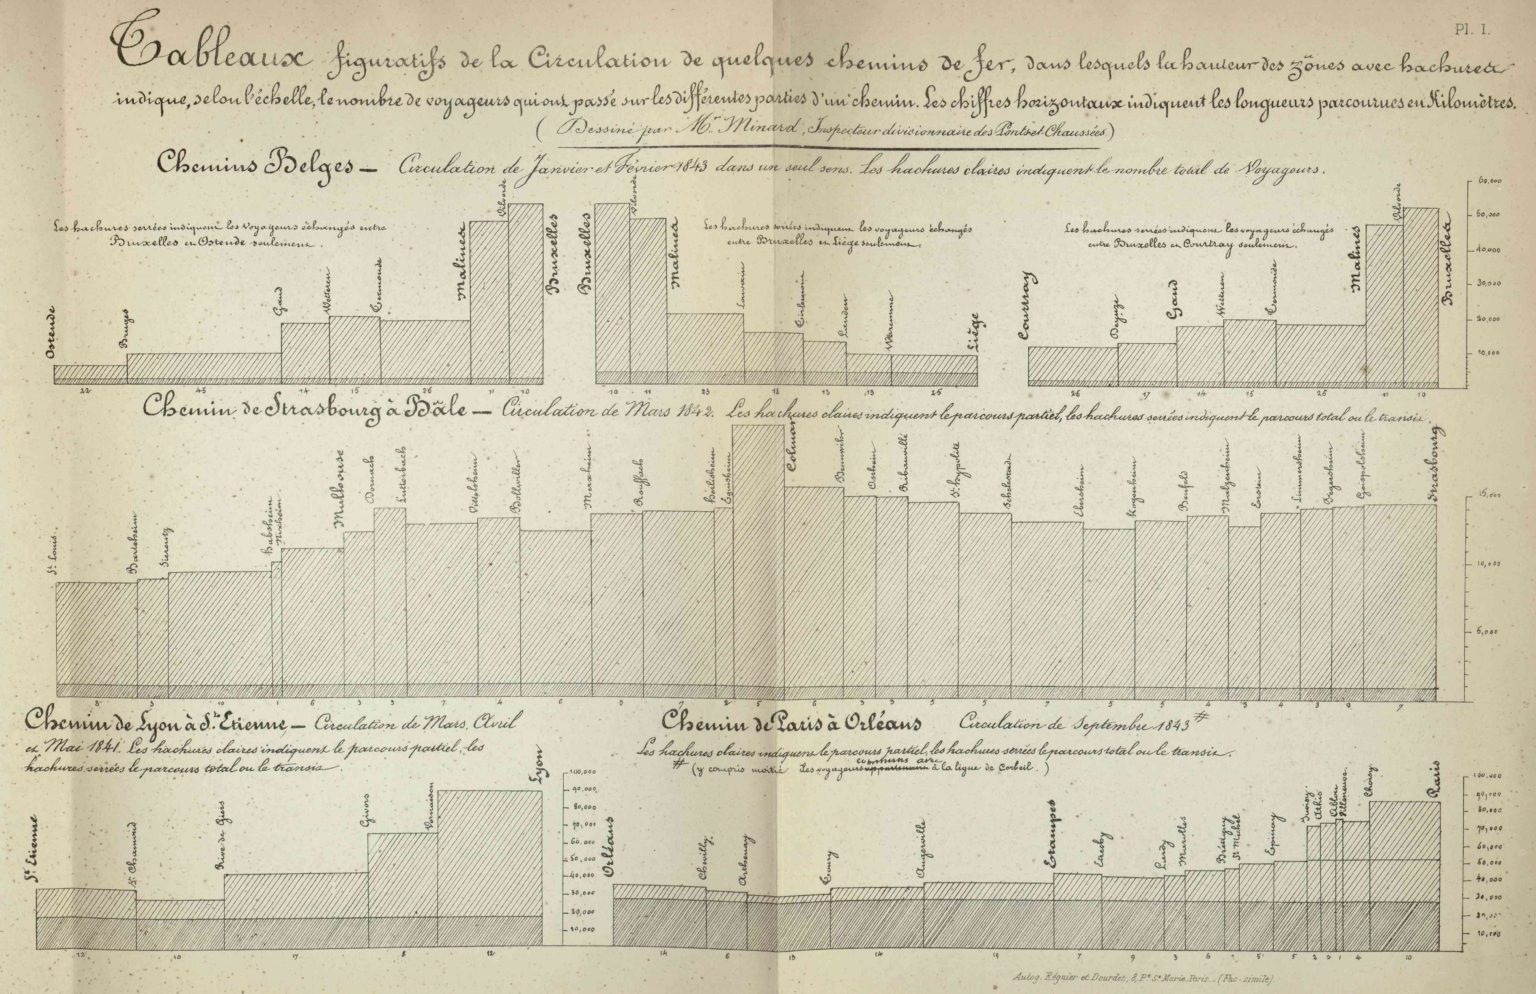 Pl. I.
Tableaux figuratifs de la Circulation de quelques chemins de fer, dans lesquels la hauteur des zônes avec hachures
indique, selon l'échelle, le nombre de voyageurs qui ont passé sur les différentes parties d'un chemin. Les chiffres horizontaux indiquent les longueurs parcourues en Kilomètres.
(Dessiné par Mr. Minard, Inspecteur divisionnaire des Ponts et Chaussées)
Chemins Belges — Circulation de Janvier et Février 1843 dans un seul sens. Les hachures claires indiquent le nombre total de Voyageurs.
Les hachures serrées indiquent les voyageurs échangés entre
Bruxelles et Ostende seulement.
Les hachures serrées indiquent les voyageurs échangés
entre Bruxelles et Liége seulement.
Les hachures serrées indiquent les voyageurs échangés
entre Bruxelles et Courtray seulement.
Ostende Bruges Gand Wetteren Termonde Malines Vilvorde Bruxelles
Bruxelles Vilvorde Malines Louvain Tirlemont Landen Waremme Liège
Courtray Deynze Gand Wetteren Termonde Malines Vilvorde Bruxelles
60,000
50,000
40,000
30,000
20,000
10,000
22 45 14 15 26 11 10
10 11 23 18 13 13 25
26 17 14 15 26 11 10
Chemin de Strasbourg à Bâle — Circulation de Mars 1842. Les hachures claires indiquent le parcours partiel, les hachures serrées indiquent le parcours total ou le transit.
St. Louis Bartenheim Sierentz Habsheim Mulhouse Dornach Lutterbach Bollwiller Merxheim Rouffach Colmar Bennwihr Ostheim Ribauvillé St. hyppolite Schelestadt Ebersheim Kogenheim Benfeld Matzenheim Erstein Limmersheim Geispolsheim Strasbourg
15,000
10,000
5,000
Chemin de Lyon à St. Etienne — Circulation de Mars, Avril
et Mai 1841. Les hachures claires indiquent le parcours partiel, les
hachures serrées le parcours total ou le transit.
St. Etienne St. Chamond Rive de Giers Givors Vernaison Lyon
100,000
90,000
80,000
70,000
60,000
50,000
40,000
30,000
20,000
10,000
12 10 17 8 12
Chemin de Paris à Orléans Circulation de Septembre 1843 #
Les hachures claires indiquent le parcours partiel, les hachures serrées le parcours total ou le transit.
# (y compris moitié des voyageurs communs avec à la ligne de Corbeil.)
Orléans Chevilly Arthenay Toury Angerville Etampes Lardy Marolles Brétigny St Michel Epinay Juvisy Athis Ablon Villeneuve Choisy Paris
100,000
90,000
80,000
70,000
60,000
50,000
40,000
30,000
20,000
10,000
14 6 13 14 19 7 9 3 6 5 5 2 2 1 4 10
Autog. Régnier et Dourdet, 8, Pge. Ste. Marie, Paris. (Fac-simile)